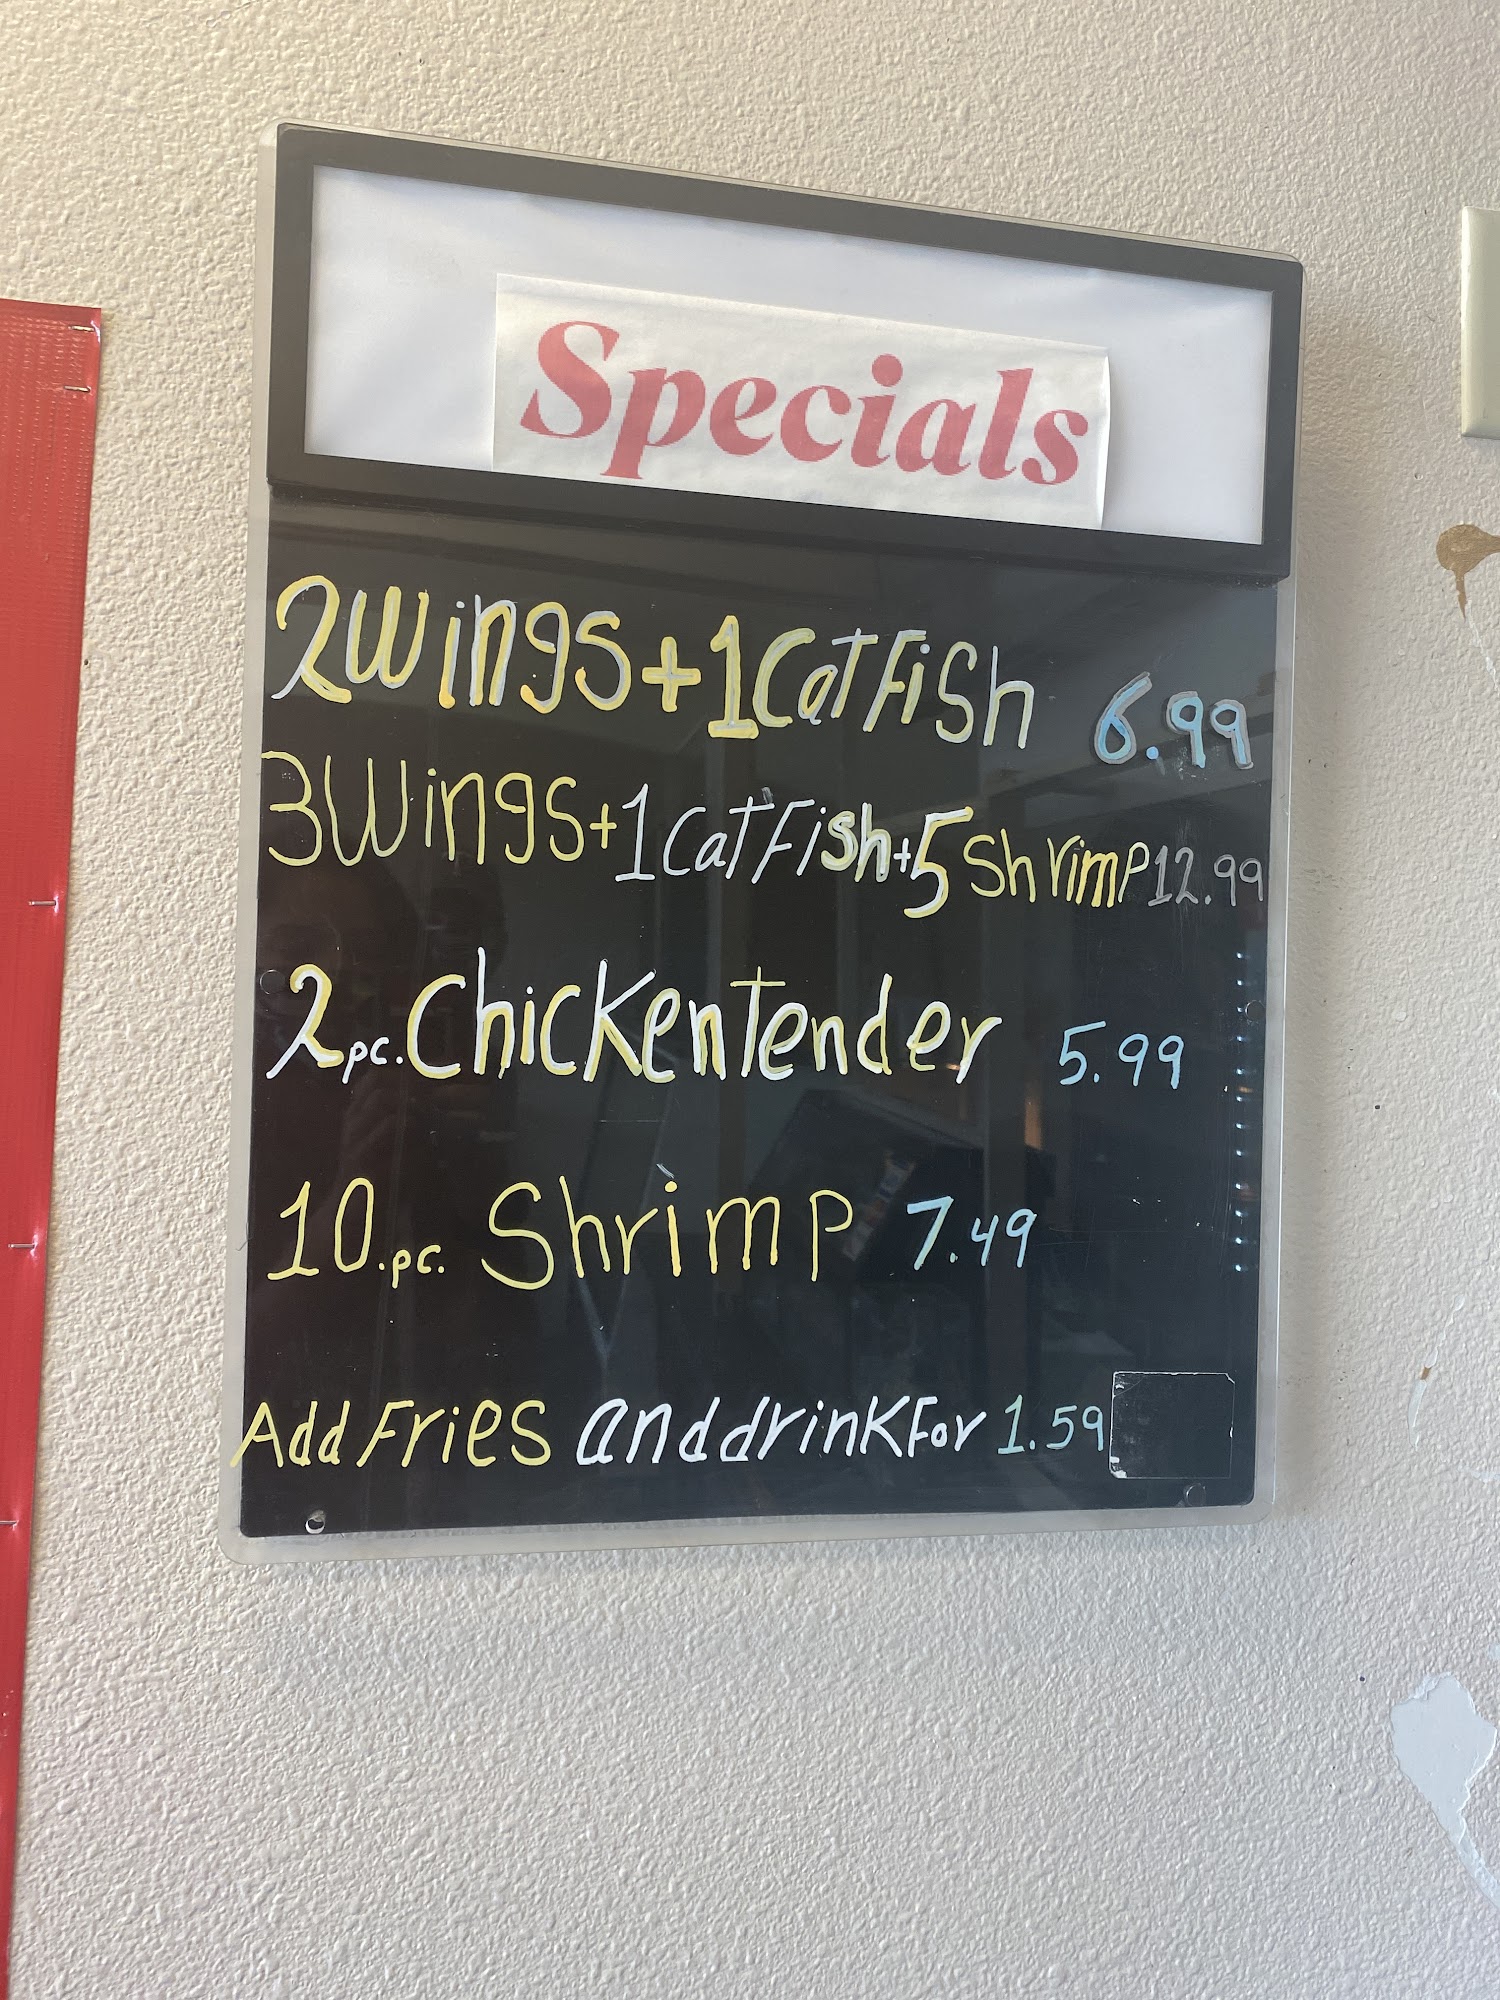 Specials
2Wings+1CatFish 6.99
3Wings+1CatFish+5 Shrimp 12.99
2pc. Chicken Tender 5.99
10.pc. Shrimp 7.49
Add Fries and drink For 1.59